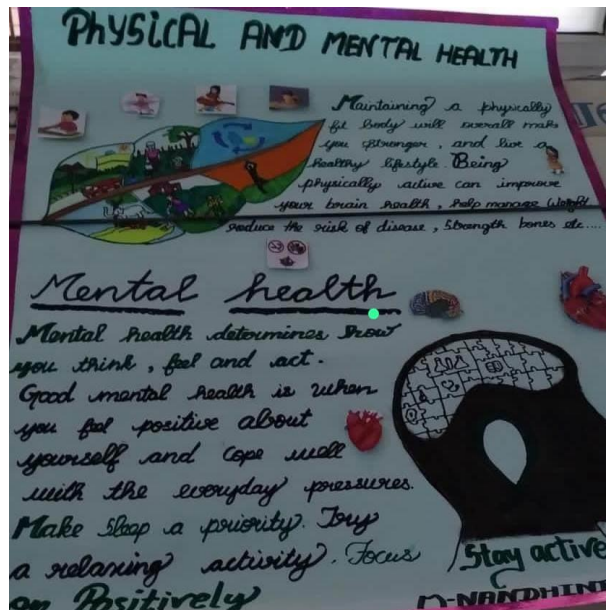 PHYSICAL AND MENTAL HEALTH
Maintaining a physically
fit body will overall make
you stronger, and live a
healthy lifestyle. Being
physically active can improve
your brain health, help manage Weight
reduce the risk of disease, Strength bones etc....
Mental health
Mental health determines how
you think, feel and act.
Good mental health is when
you feel positive about
yourself and cope well
with the everyday pressures.
Make sleep a priority. Try
a relaxing activity. Focus
on Positively
Stay active
M-NANDHINI